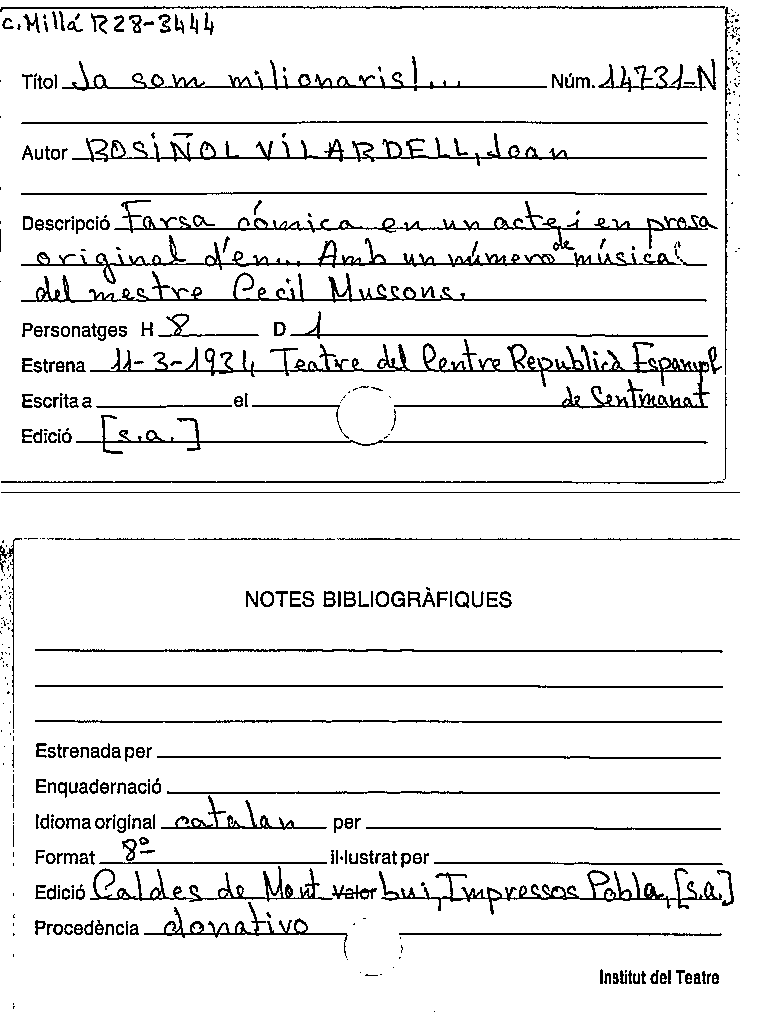 c. Millá R28-3444
Títol Ja som milionaris!... Núm. 14731-N
Autor ROSIÑOL VILARDELL, Joan
Descripció Farsa còmica en un acte i en prosa
original d'en... Amb un número de música
del mestre Cecil Mussons.
Personatges H 8 D 1
Estrena 11-3-1934 Teatre del Centre Republicà Espanyol
Escrita a el de Sentmanat
Edició [s.a.]
NOTES BIBLIOGRÀFIQUES
Estrenada per
Enquadernació
Idioma original catalan per
Format 8º il·lustrat per
Edició Caldes de Mont Valor bui, Impressos Pobla, [s.a.]
Procedència donativo
Institut del Teatre